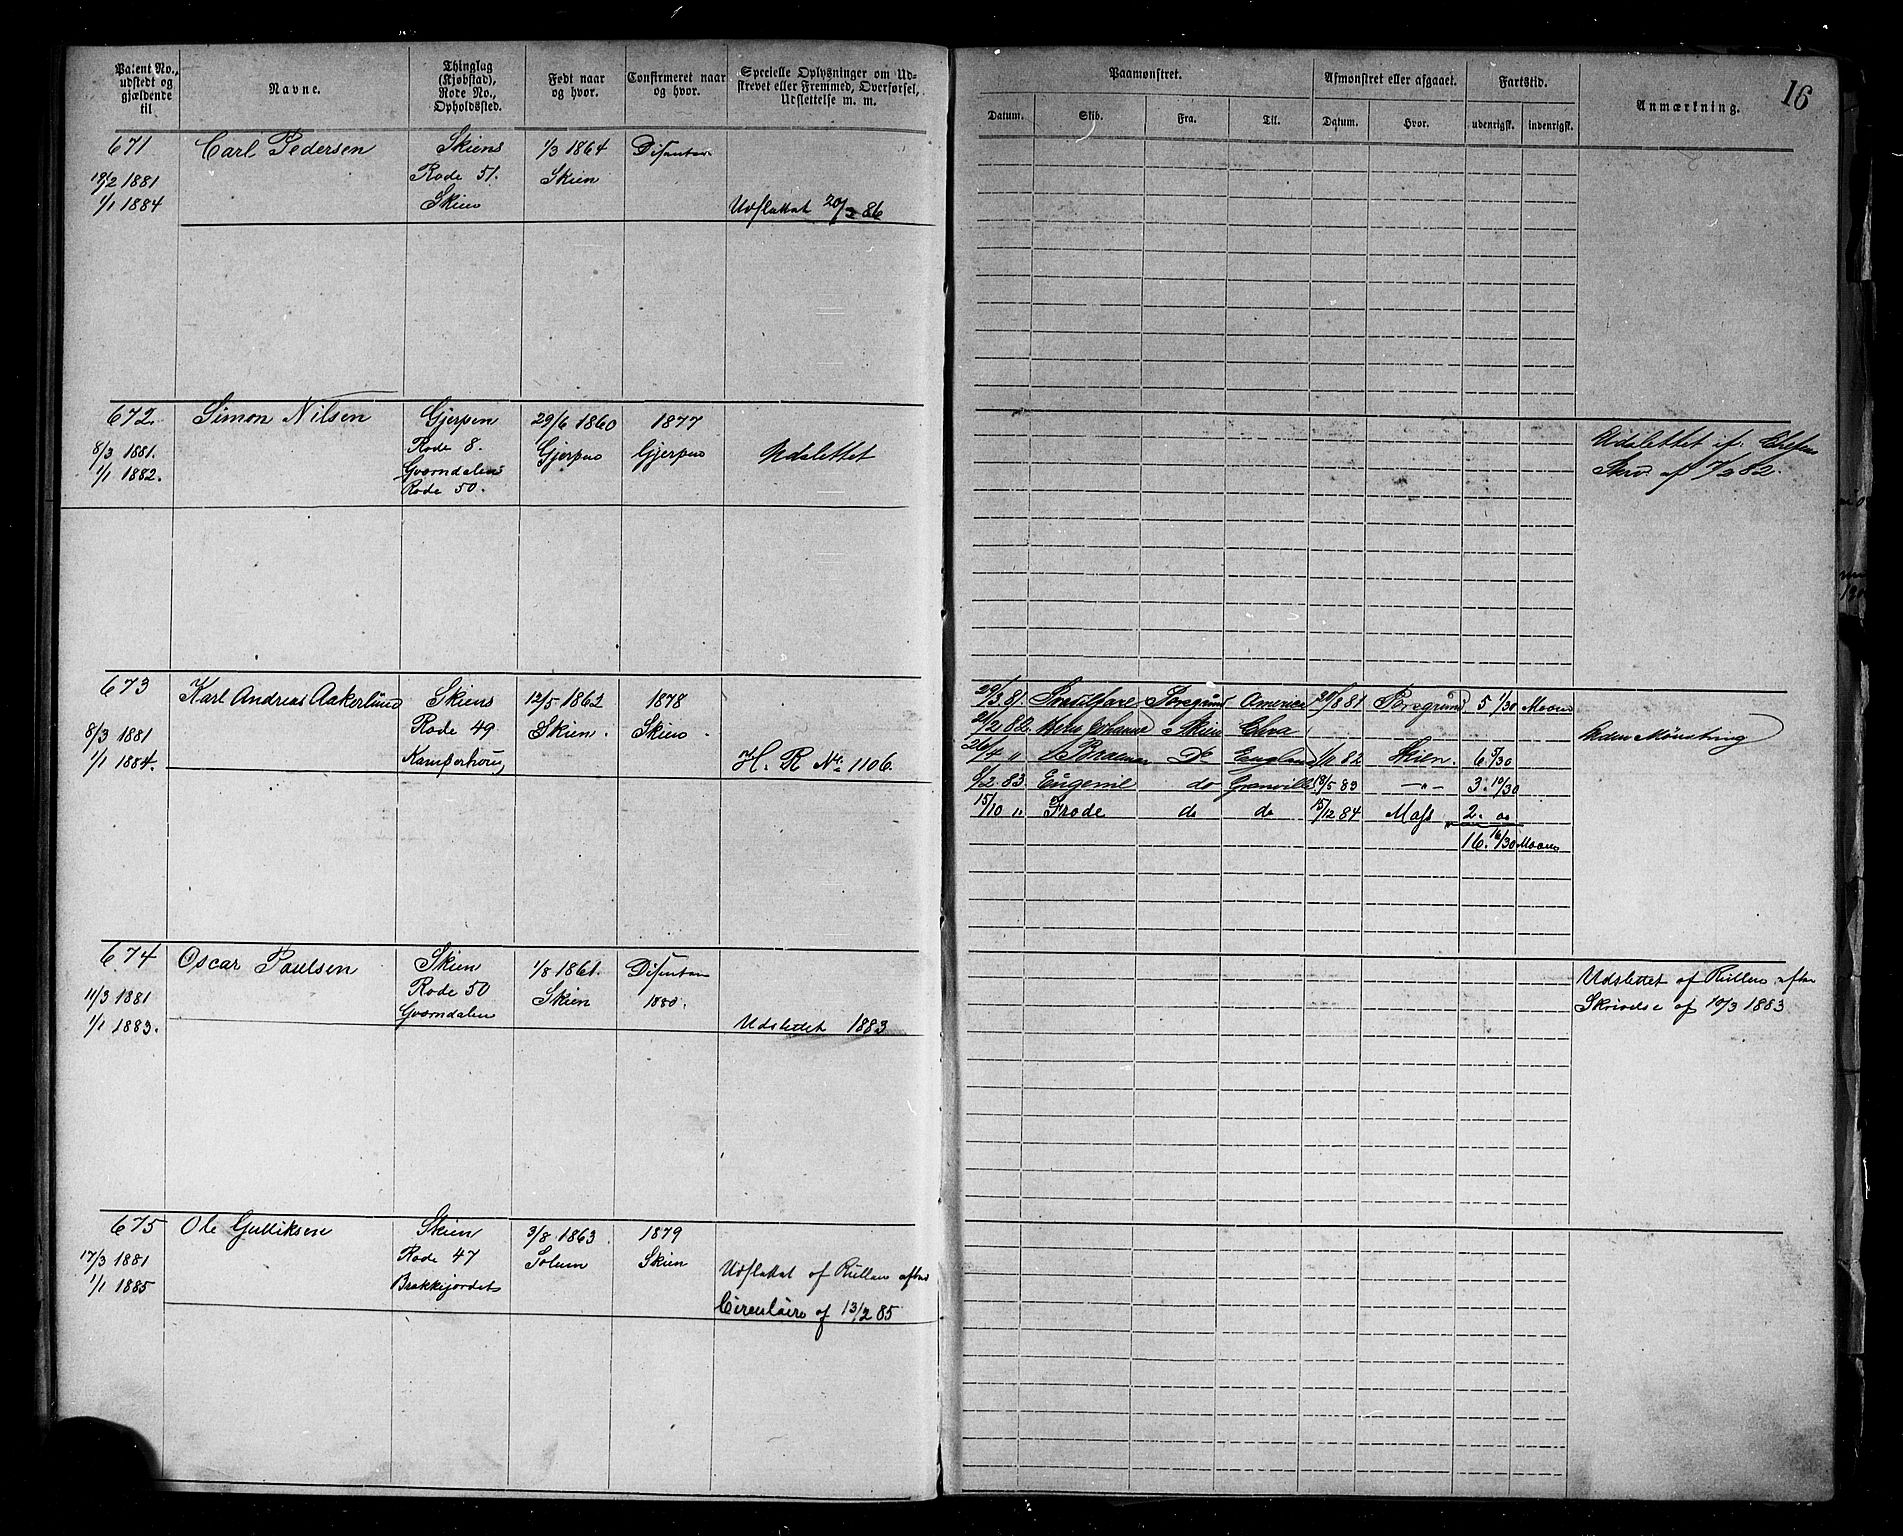 16
Patent No., udstedt og gjældende til
Navne.
Thinglag (Kjøbstad), Rode No., Opholdssted.
Født naar og hvor.
Confirmeret naar og hvor.
Specielle Oplysninger om Udskrevet eller Fremmed, Overførsel, Udslettelse m. m.
Paamønstret.
Afmønstret eller afgaaet.
Fartstid.
Anmærkning.
Datum. Skib. Fra. Til. Datum. Hvor. udenrigsk. indenrigsk.
671 Carl Pedersen Skiens 1/3 1864
2 1881 Rode 51. Skien
1/1 1884 Skien 86
672. Simon Nilsen Gjerpen 29/6 1860 1877
8/3 1881. Rode 8. Gjerpen Gjerpen Udslettet
1/1 1882. Rode 50.
Udslettet
Skr. af 82.
673 Karl Andreas Aakerlund Skiens 12/5 1862 1878
8/3 1881 Rode 49 Skien. Skien
1/1 1884. H. R No. 1106.
29/3 81 America 81 5 1/30 Maaned
2 82. Skien
26/4 " D. England 82 Skien. 6 5/30
2 83. Eugenie do Granville 83 -"- 3.
15/10 " Frode do do 15/12 84 2. 00
16. 16/30
uden Mønstring
674 Oscar Paulsen Skien 1/8 1861. Disenter
11/3 1881 Rode 50 Skien 1880.
1/1 1883. Udslettet 1883
Udslettet af Rullen efter
Skrivelse af 10/3 1883
675 Ole Gulliksen Skien 3/8 1863. 1879
17/3 1881 Rode 47 Solum Skien
1/1 1885 Brækkejordet
Udslettet af Rullen efter
Circulaire af 13/2 85